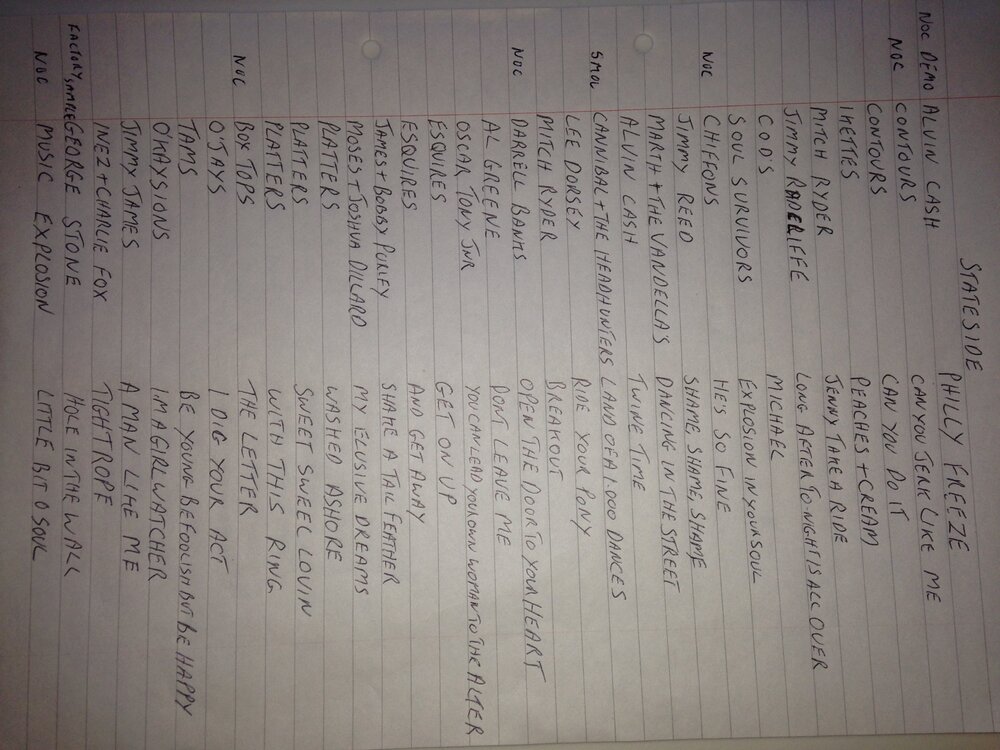 STATESIDE
NOC DEMO ALVIN CASH PHILLY FREEZE
NOC CONTOURS CAN YOU JERK LIKE ME
CONTOURS CAN YOU DO IT
IKETTES PEACHES + CREAM
MITCH RYDER JENNY TAKE A RIDE
JIMMY RADCLIFFE LONG AFTER TONIGHT IS ALL OVER
C.O.D'S MICHAEL
SOUL SURVIVORS EXPLOSION IN YOUR SOUL
NOC CHIFFONS HE'S SO FINE
JIMMY REED SHAME, SHAME, SHAME
MARTH + THE VANDELLA'S DANCING IN THE STREET
ALVIN CASH TWINE TIME
SMOL CANNIBAL + THE HEADHUNTERS LAND OF A 1.000 DANCES
LEE DORSEY RIDE YOUR PONY
MITCH RYDER BREAKOUT
NOC DARRELL BANKS OPEN THE DOOR TO YOUR HEART
AL GREENE DONT LEAVE ME
OSCAR TONY JNR YOU CAN LEAD YOUR OWN WOMAN TO THE ALTER
ESQUIRES GET ON UP
ESQUIRES AND GET AWAY
JAMES + BOBBY PURLEY SHAKE A TAIL FEATHER
MOSES + JOSHUA DILLARD MY ELUSIVE DREAMS
PLATTERS WASHED ASHORE
PLATTERS SWEET SWEEL LOVIN
PLATTERS WITH THIS RING
NOC BOX TOPS THE LETTER
O'JAYS I DIG YOUR ACT
TAMS BE YOUNG BE FOOLISH BUT BE HAPPY
O'KAYSIONS IM A GIRL WATCHER
JIMMY JAMES A MAN LIKE ME
INEZ + CHARLIE FOX TIGHTROPE
FACTORY SAMPLE GEORGE STONE HOLE IN THE WALL
NOC MUSIC EXPLOSION LITTLE BIT O SOUL